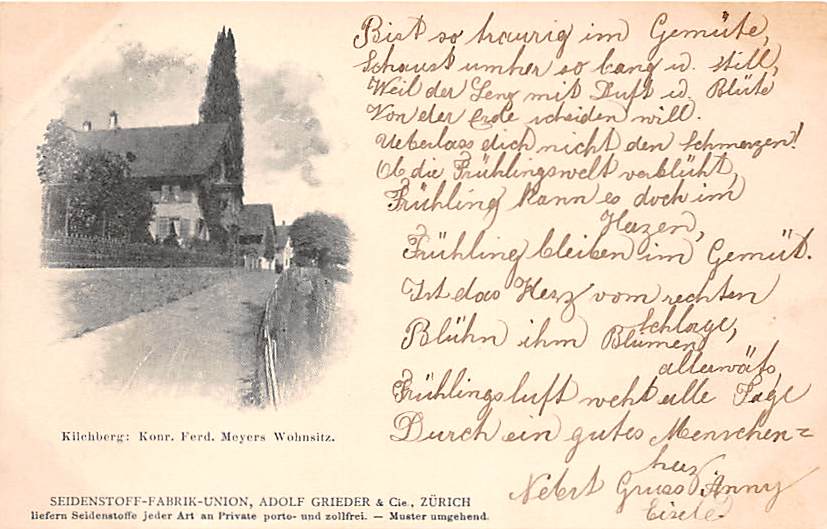 Bist so traurig im Gemüte,
Schaust umher so bang u. still,
Weil der Lenz mit Duft u. Blüte
Von der Erde scheiden will.
Ueberlass dich nicht den Schmerzen!
Ob die Frühlingswelt verblüht,
Frühling kann es doch im
Herzen,
Frühling bleiben im Gemüt.
Ist das Herz vom rechten
Schlage,
Blühn ihm Blumen
allerwärts,
Frühlingsluft weht alle Tage
Durch ein gutes Menschen=
herz
Nebst Gruss Anny
Eisele
Kilchberg: Konr. Ferd. Meyers Wohnsitz.
SEIDENSTOFF-FABRIK-UNION, ADOLF GRIEDER & Cie., ZÜRICH
liefern Seidenstoffe jeder Art an Private porto- und zollfrei. — Muster umgehend.